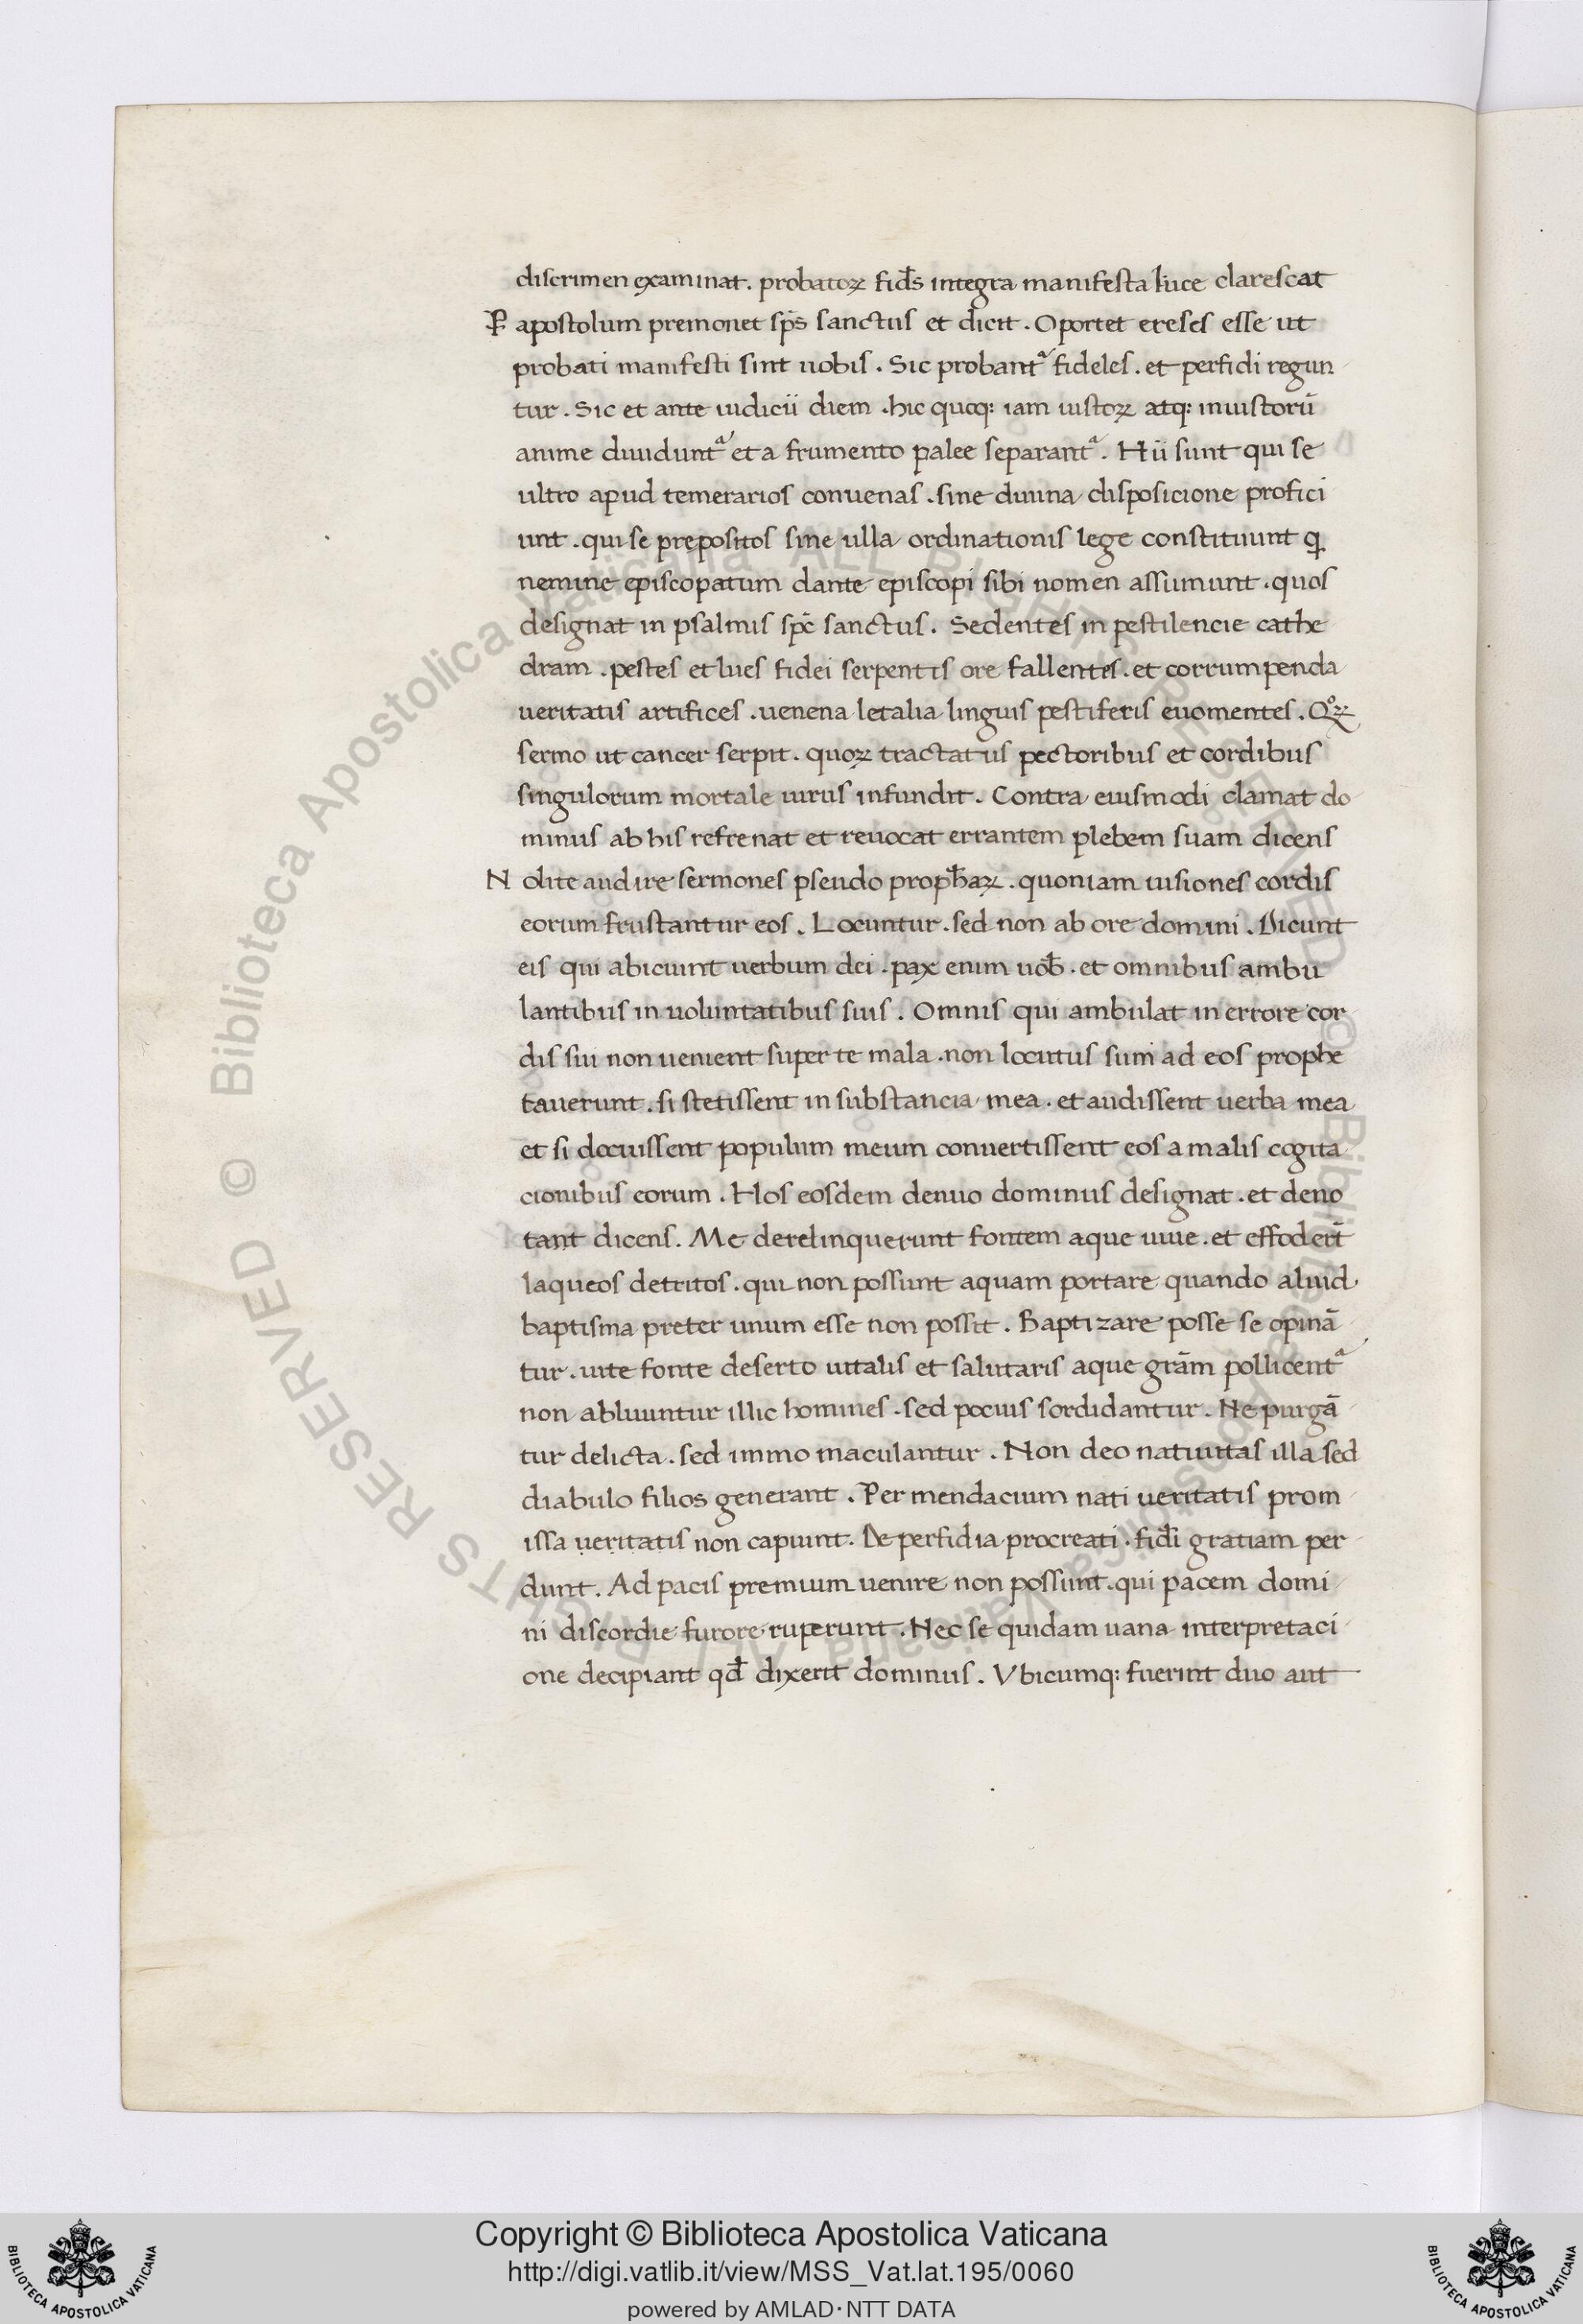 discrimen examinat. probatoꝝ fid̄s integra manifesta luce clarescat
Ꝑ apostolum premonet sp̄s sanctus et dicit. Oportet ereses esse ut
probati manifesti sint uobis. Sic probantᷣ fideles. et perfidi regun
tur. Sic et ante iudicii diem. hic quoq: iam iustoꝝ atq: iniustorū
anime diuiduntᷣ et a frumento palee separantᷣ. Hii sunt qui se
ultro apud temerarios conuenas. sine diuina disposicione profici
unt. qui se prepositos sine ulla ordinationis lege constituunt qi
nemine episcopatum dante episcopi sibi nomen assumunt. quos
designat in psalmis sp̄c sanctus. Sedentes in pestilencie cathe
dram. pestes et lues fidei serpentis ore fallentes. et corrumpenda
ueritatis artifices. uenena letalia linguis pestiferis euomentes. Qͦꝝ
sermo ut cancer serpit. quoꝝ tractatus pectoribus et cordibus
singulorum mortale uirus infundit. Contra eiusmodi clamat do
minus ab his refrenat et reuocat errantem plebem suam dicens
Nolite audire sermones pseudo proph̄aꝝ. quoniam uisiones cordis
eorum frustantur eos. Locuntur. sed non ab ore domini. Dicunt
eis qui abiciunt uerbum dei. pax enim uob̄. et omnibus ambu
lantibus in uoluntatibus suis. Omnis qui ambulat in errore cor
dis sui non uenient super te mala. non locutus sum ad eos prophe
tauerunt. si stetissent in substancia mea. et audissent uerba mea
et si docuissent populum meum conuertissent eos a malis cogita
cionibus eorum. Hos eosdem denuo dominus designat. et deno
tant dicens. Me derelinquerunt fontem aque uiue. et effoder̄t
laqueos detritos. qui non possunt aquam portare quando aliud
baptisma preter unum esse non possit. Baptizare posse se opinā
tur. uite fonte deserto uitalis et salutaris aque grām pollicentᷣ
non abluuntur illic homines. sed pocius sordidantur. Ne purgā
tur delicta. sed immo maculantur. Non deo natiuitas illa sed
diabulo filios generant. Per mendacium nati ueritatis prom
issa ueritatis non capiunt. De perfidia procreati. fid̄i gratiam per
dunt. Ad pacis premium uenire non possunt. qui pacem domi
ni discordie furore ruperunt. Nec se quidam uana interpretaci
one decipiant qd̄ dixerit dominus. Vbicumq: fuerint duo aut
Copyright © Biblioteca Apostolica Vaticana
http://digi.vatlib.it/view/MSS_Vat.lat.195/0060
powered by AMLAD·NTT DATA
BIBLIOTECA APOSTOLICA VATICANA
BIBLIOTECA APOSTOLICA VATICANA
© Biblioteca Apostolica Vaticana ALL RIGHTS RESERVED
© Biblioteca Apostolica Vaticana ALL RIGHTS RESERVED